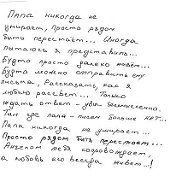 Папа никогда не
умирает, просто рядом
быть перестаёт... Иногда
пытаюсь я представить...
Будто просто далеко живёт...
Будто можно отправить ему
письма, рассказать, как я
люблю рассвет... Только
ждать ответ - увы бессмысленно.
Там где папа - писем больше нет...
Папа никогда не умирает...
Просто рядом быть перестаёт...
Ангелом тебя сопровождает,
а любовь его всегда живёт!